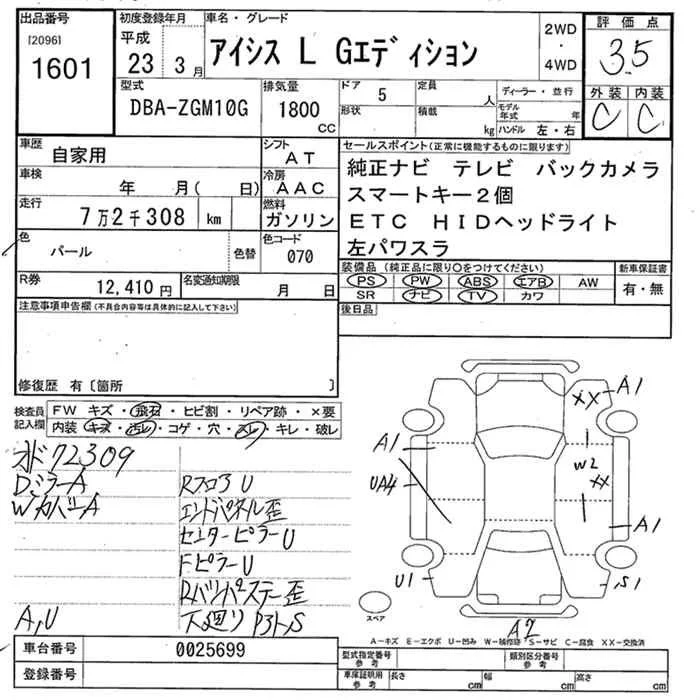 出品番号
[2096]
1601
初度登録年月
平成
23 3月
車名・グレード
アイシス L Gエディション
2WD
・
4WD
評価点
3.5
外装 内装
C C
型式
DBA-ZGM10G
排気量
1800
CC
ドア 5
形状
定員 人
積載 kg
ディーラー・並行
モデル年式 年
ハンドル 左・右
車歴
自家用
シフト
AT
車検
年 月( 日)
冷房
AAC
走行
7万2千308 km
燃料
ガソリン
色
パール
色替
色コード
070
R券
12,410円
名変通知期限
月 日
セールスポイント(正常に機能するものに限ります)
純正ナビ テレビ バックカメラ
スマートキー2個
ETC HIDヘッドライト
左パワスラ
装備品(純正品に限り○をつけてください)
PS PW ABS エアB AW
SR ナビ TV カワ
新車保証書
有・無
後日品
注意事項申告欄(不具合内容等は具体的に記入して下さい)
修復歴 有〔箇所 〕
検査員記入欄
FW キズ・飛石・ヒビ割・リペア跡・×要
内装・キズ・汚レ・コゲ・穴・スレ・キレ・破レ
オド72309
DミラーA
WカバーA
RフロアU
エンドパネル歪
センターピラーU
FピラーU
Rバンパステー歪
A,U
下廻り P3ト,S
XX A1
A1
W2
XX
UA4
A1
U1
S1
スペア
A2
A-キズ E-エクボ U-凹み W-補修跡 S-サビ C-腐食 XX-交換済
車台番号
0025699
登録番号
型式指定番号
参考
類別区分番号
参考
車庫証明用
参考
長さ cm
幅 cm
高さ cm